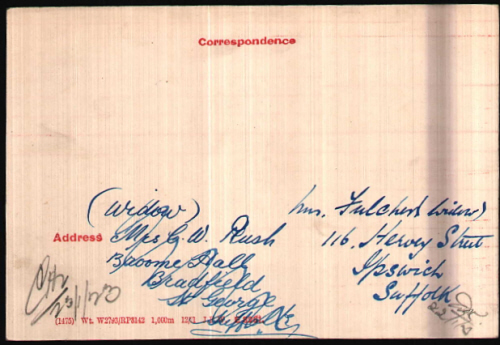 Correspondence
(Widow)
Address Mrs G. W. Rush
Broome Hall
Bradfield
St George
Suffolk
Mrs. Fulcher (widow)
116, Hervey Street
Ipswich
Suffolk
23/1/23
(1473) Wt. 1,000m